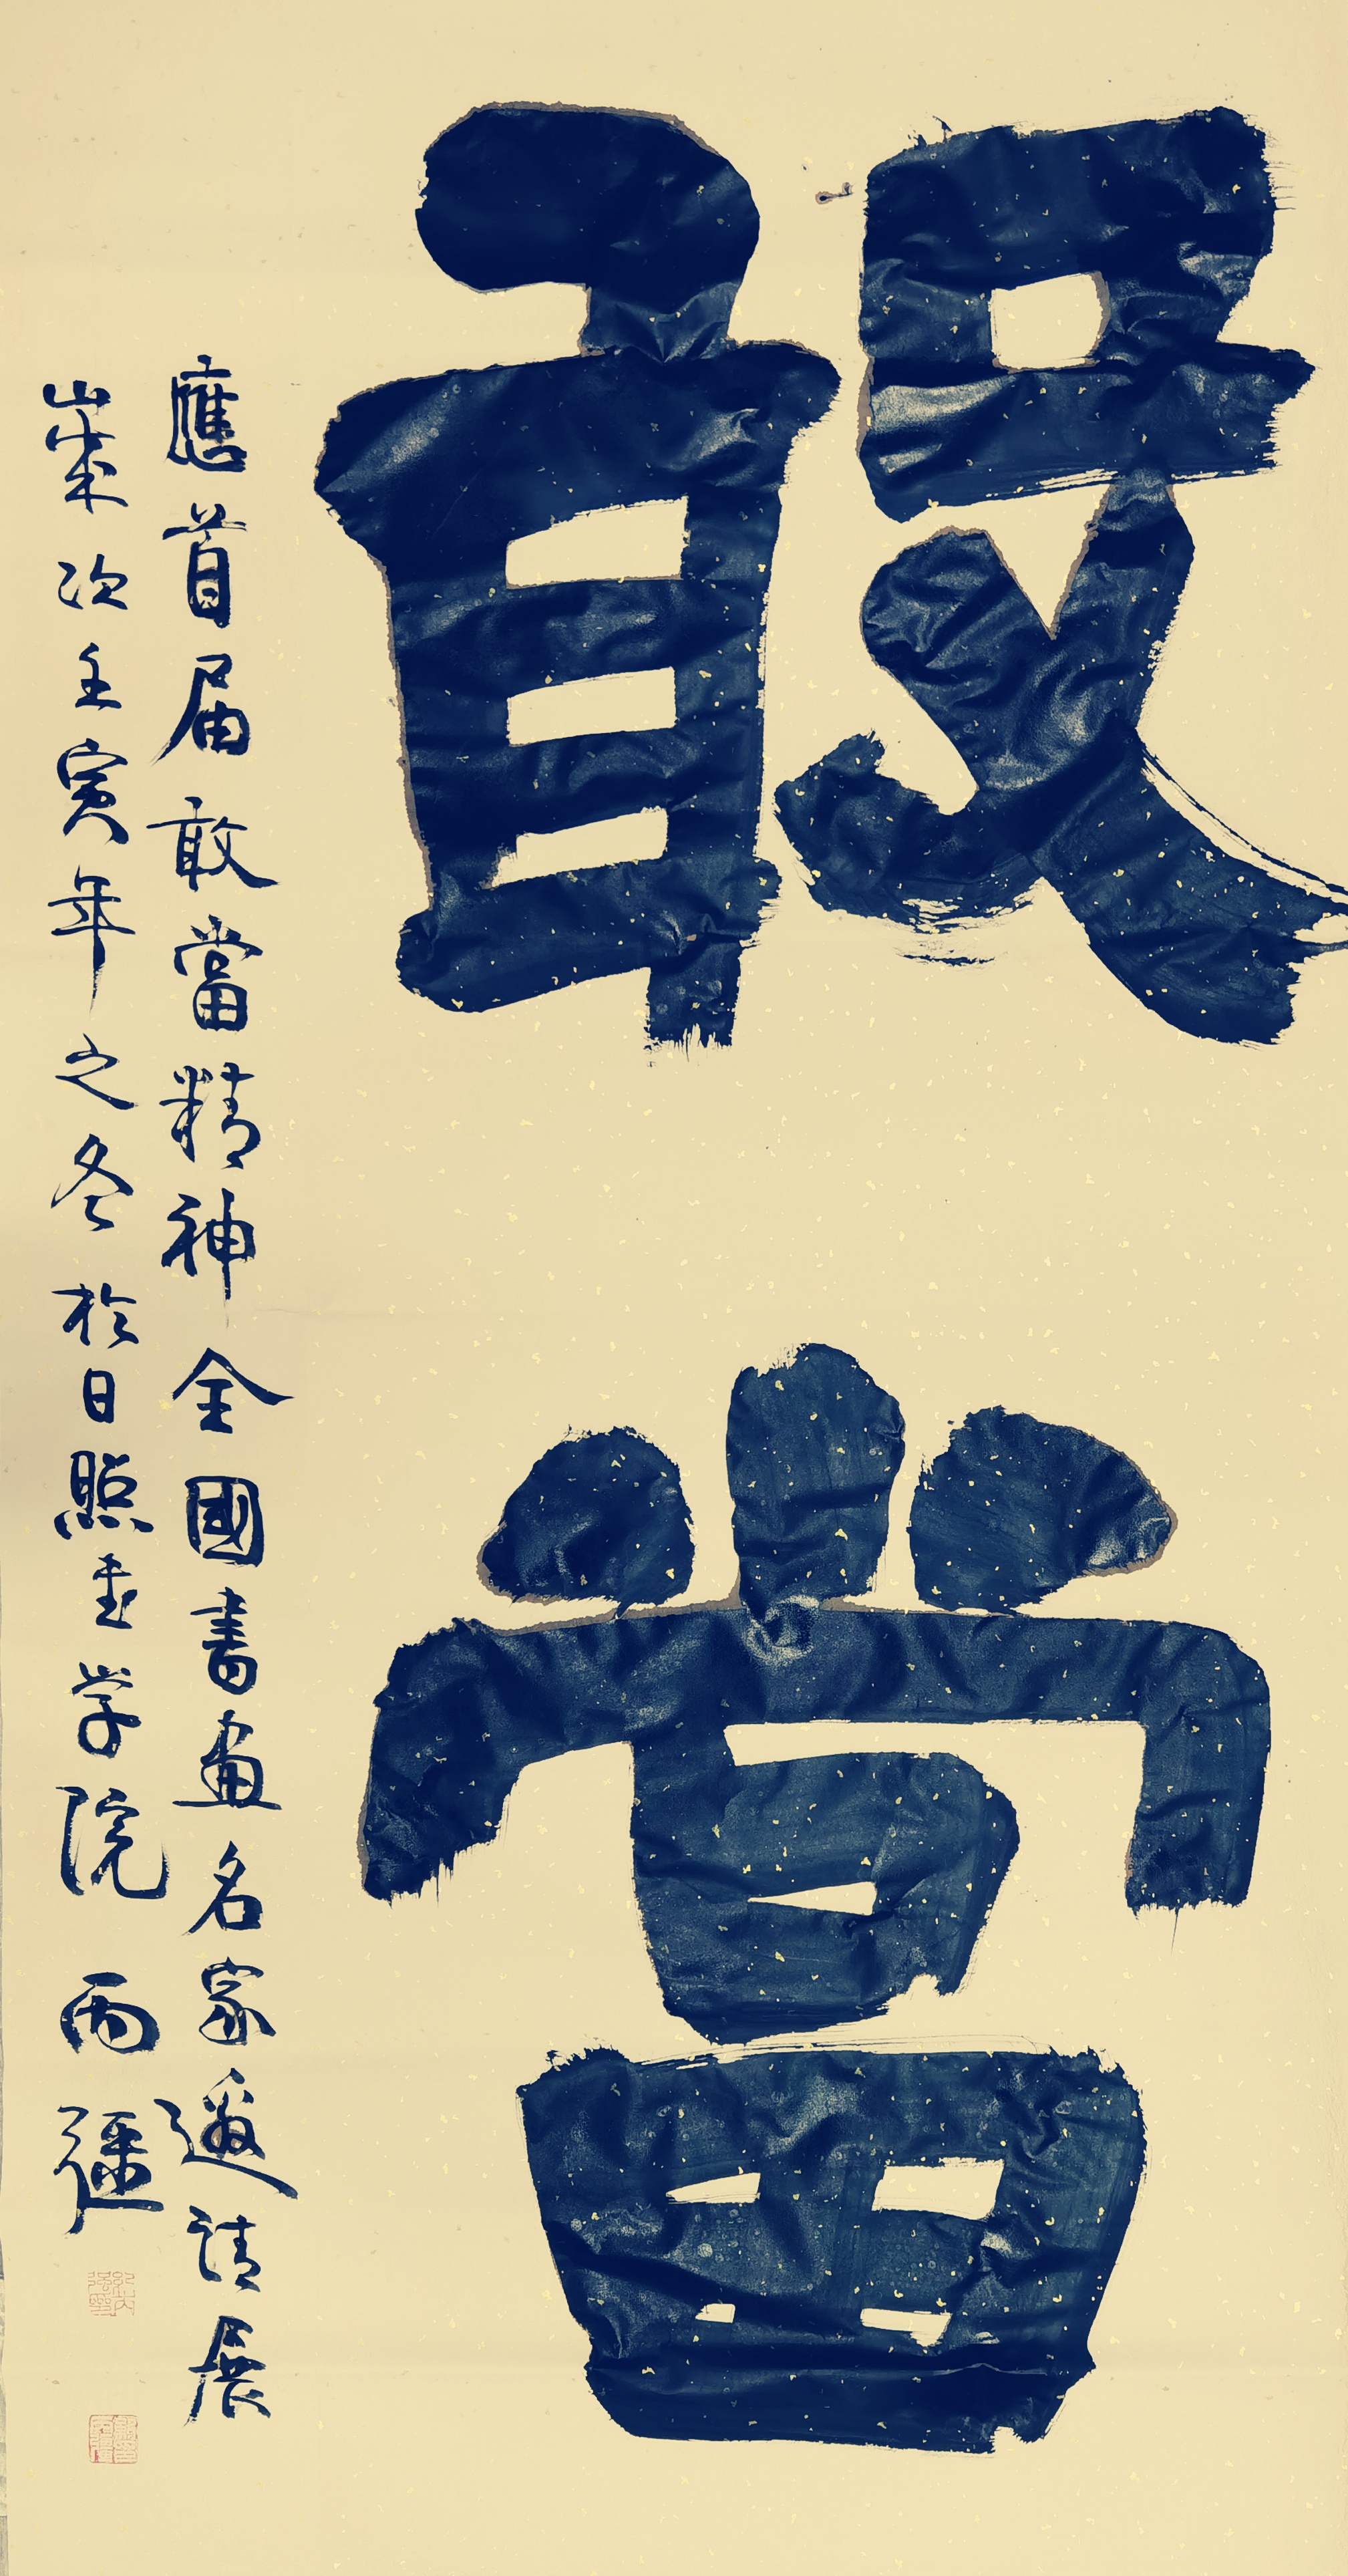 敢當
應首届敢當精神全國書畫名家邀請展
嵗次壬寅年之冬於日照画学院雨疆